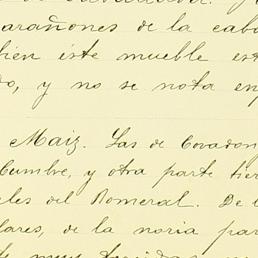 arañones de la cabo
bien este mueble est
do, y no se nota en
Maiz. Las de Covadon
Cumbre, y otra parte tier
les del Romeral. De l
lares, de la noria par